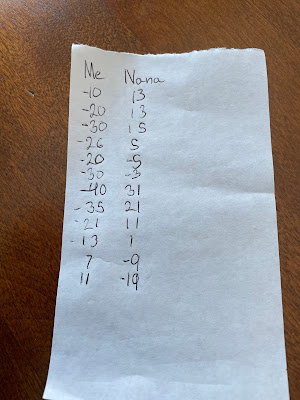 Me Nana
-10 13
-20 13
-30 15
-26 5
-20 -5
-30 -3
-40 31
-35 21
-21 11
-13 1
7 -9
11 -19